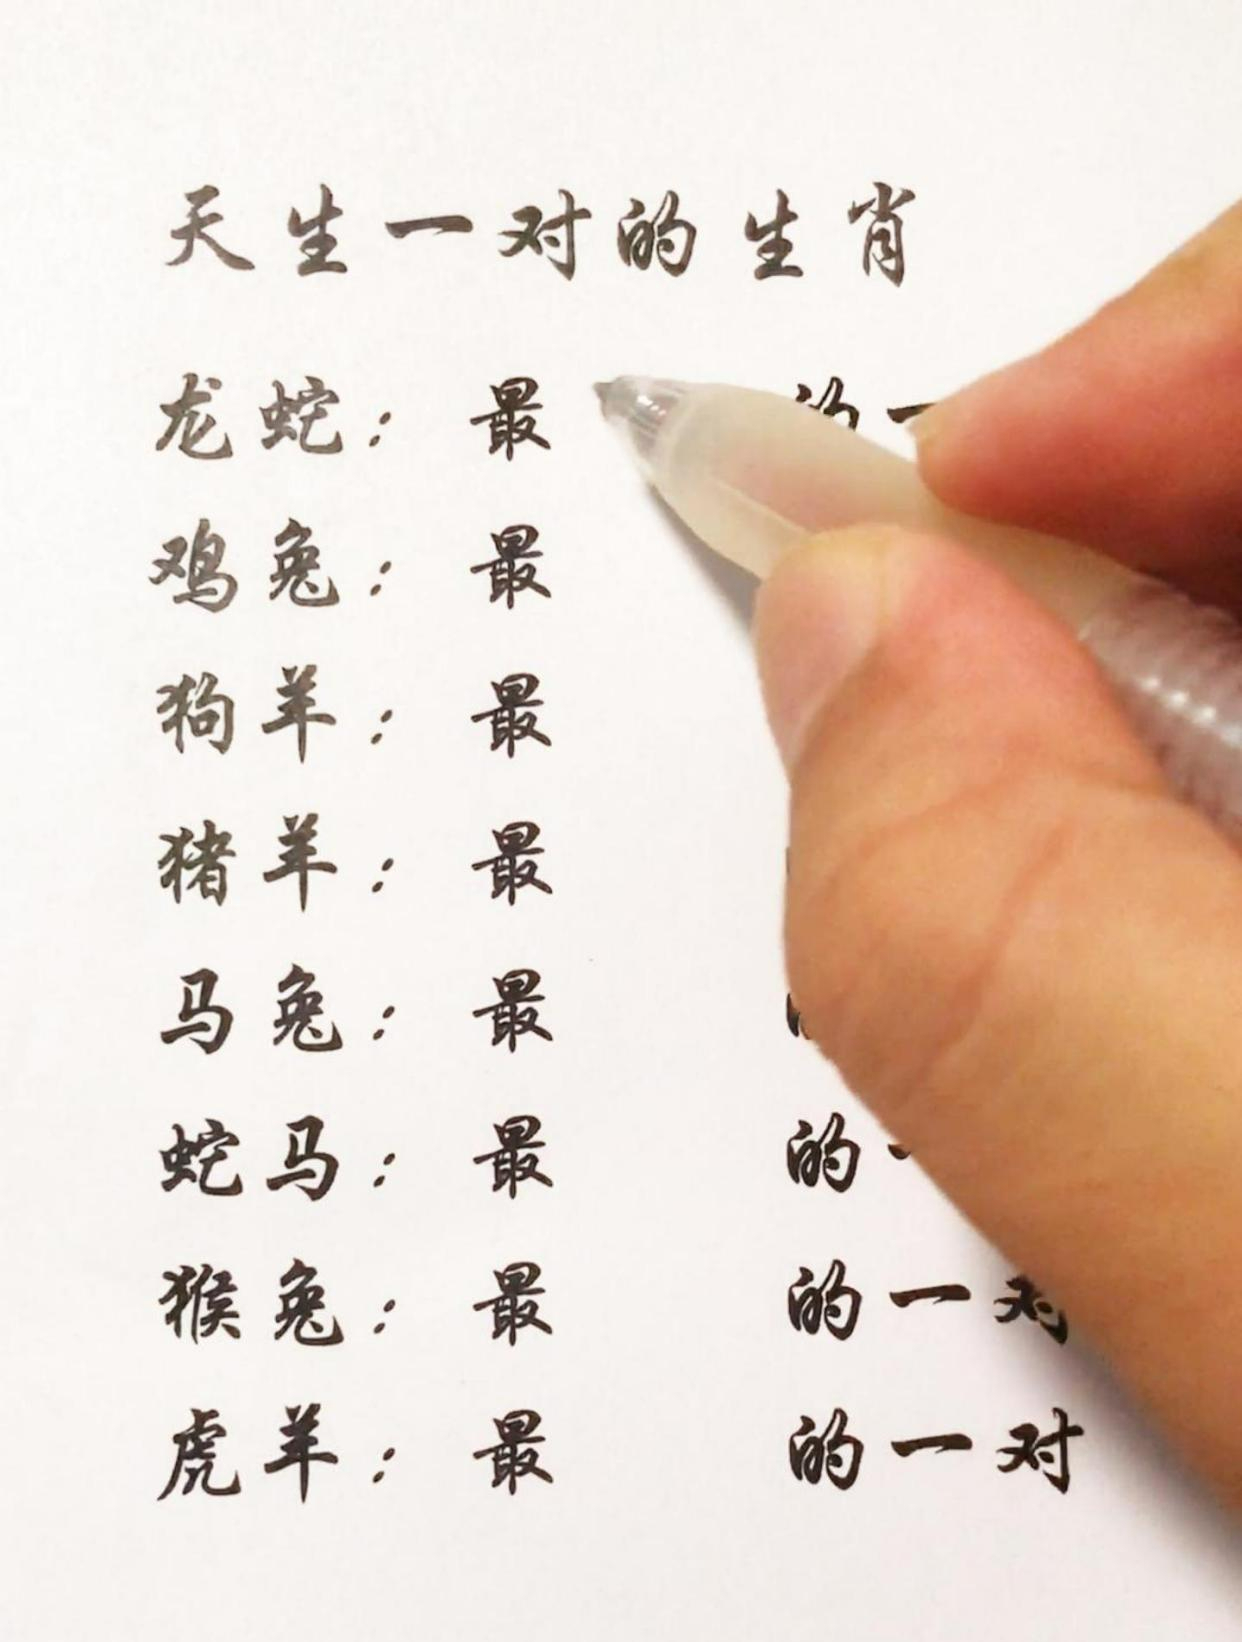 天生一对的生肖
龙蛇：最 的一
鸡兔：最
狗羊：最
猪羊：最
马兔：最
蛇马：最 的
猴兔：最 的一对
虎羊：最 的一对